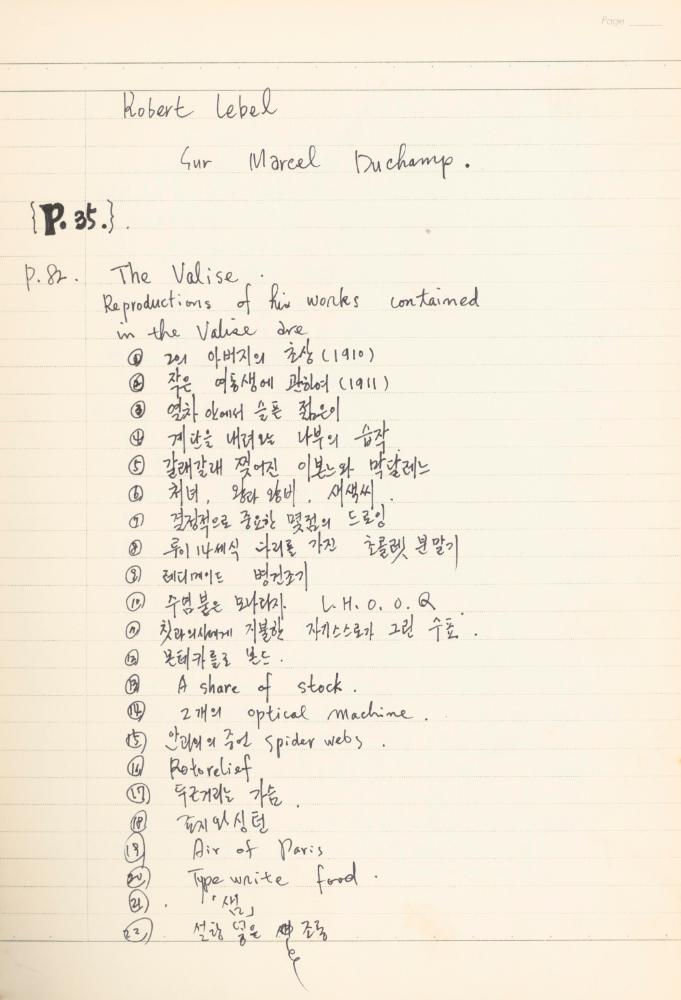 Page
Robert Lebel
Sur Marcel Duchamp.
{P. 35.}.
P. 82. The Valise.
Reproductions of his works contained
in the Valise are
① 그의 아버지의 초상 (1910)
② 작은 여동생에 관하여 (1911)
③ 열차 안에서 슬픈 젊은이
④ 계단을 내려오는 나부의 습작
⑤ 갈래갈래 찢어진 이본느와 막달레느
⑥ 처녀, 왕과 왕비, 새색씨.
⑦ 결정적으로 중요한 몇점의 드로잉
⑧ 루이 14세식 다리를 가진 초콜렛 분말기
⑨ 레디메이드 병건조기
⑩ 수염 붙은 모나리자 L.H.O.O.Q.
⑪ 칫과의사에게 지불한 자기스스로가 그린 수표.
⑫ 몬테카를로 본드.
⑬ A share of stock.
⑭ 2개의 optical machine.
⑮ 안과의의 주언 spider webs.
⑯ Rotorelief
⑰ 두근거리는 가슴.
⑱ 표지와 싱턴
⑲ Air of Paris
⑳ Type write food.
㉑. 「샘」
㉒ 설탕 넣은 조롱